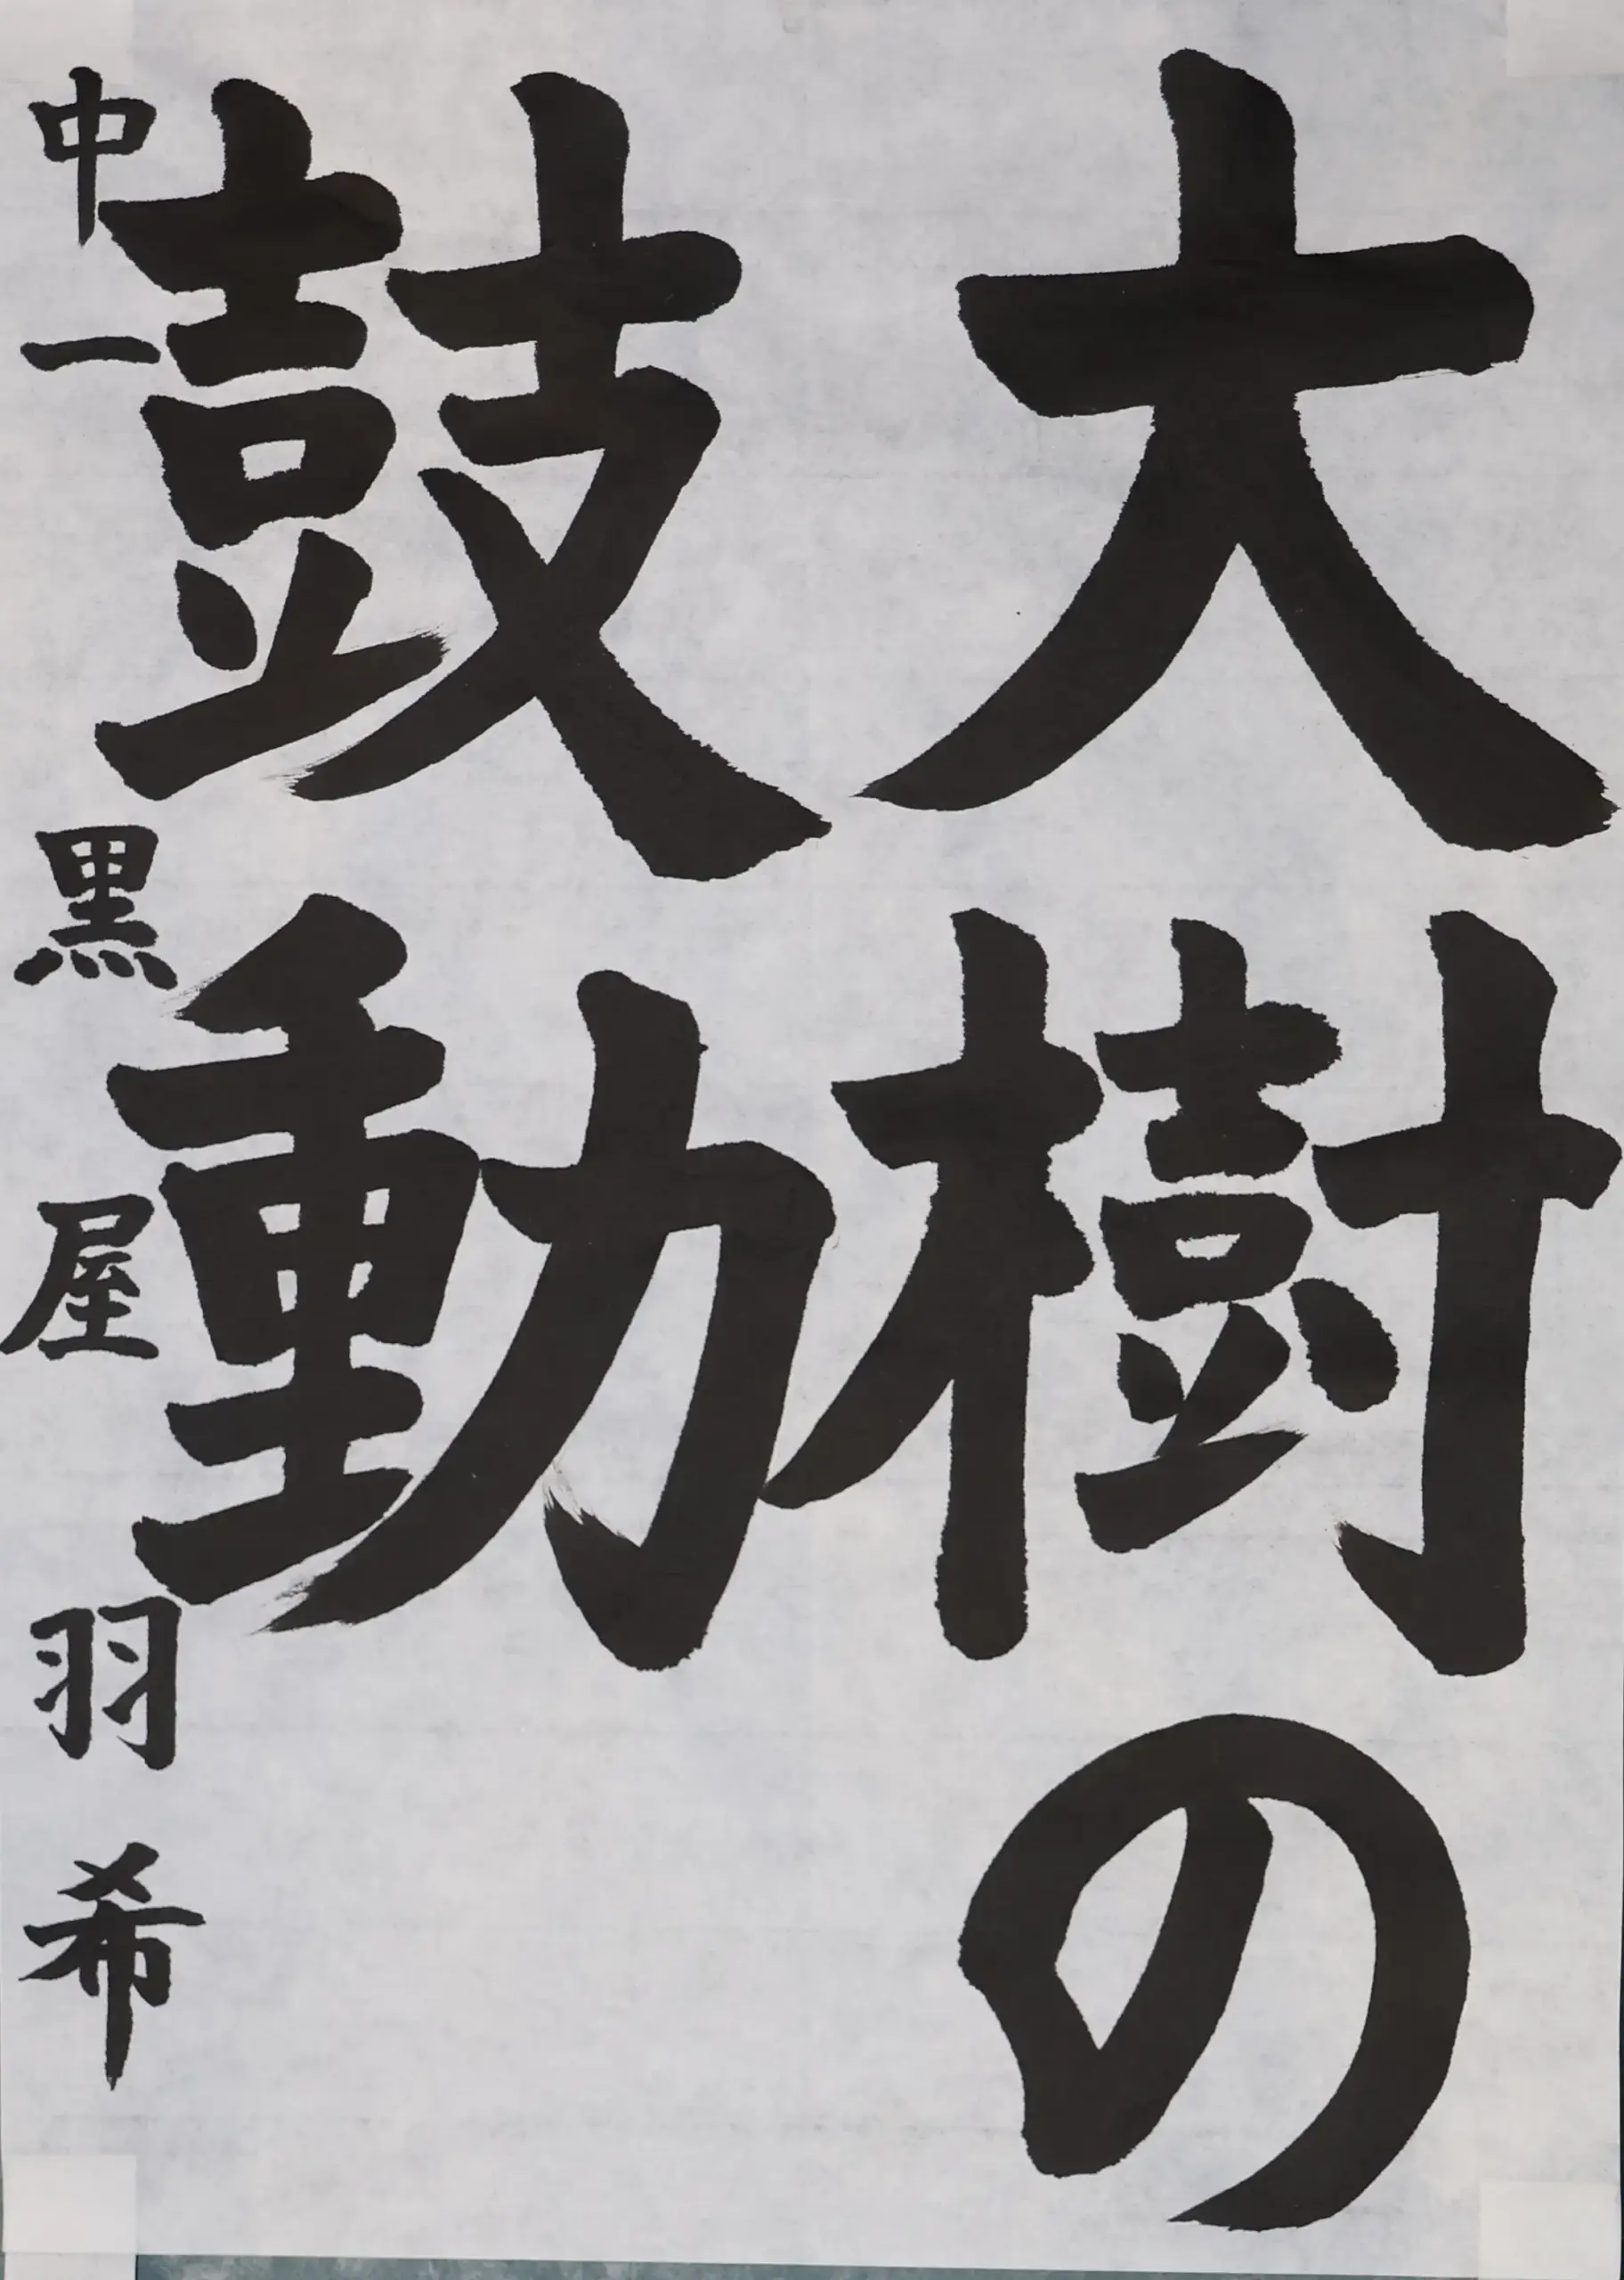 大樹の
鼓動
中一 黒屋羽希